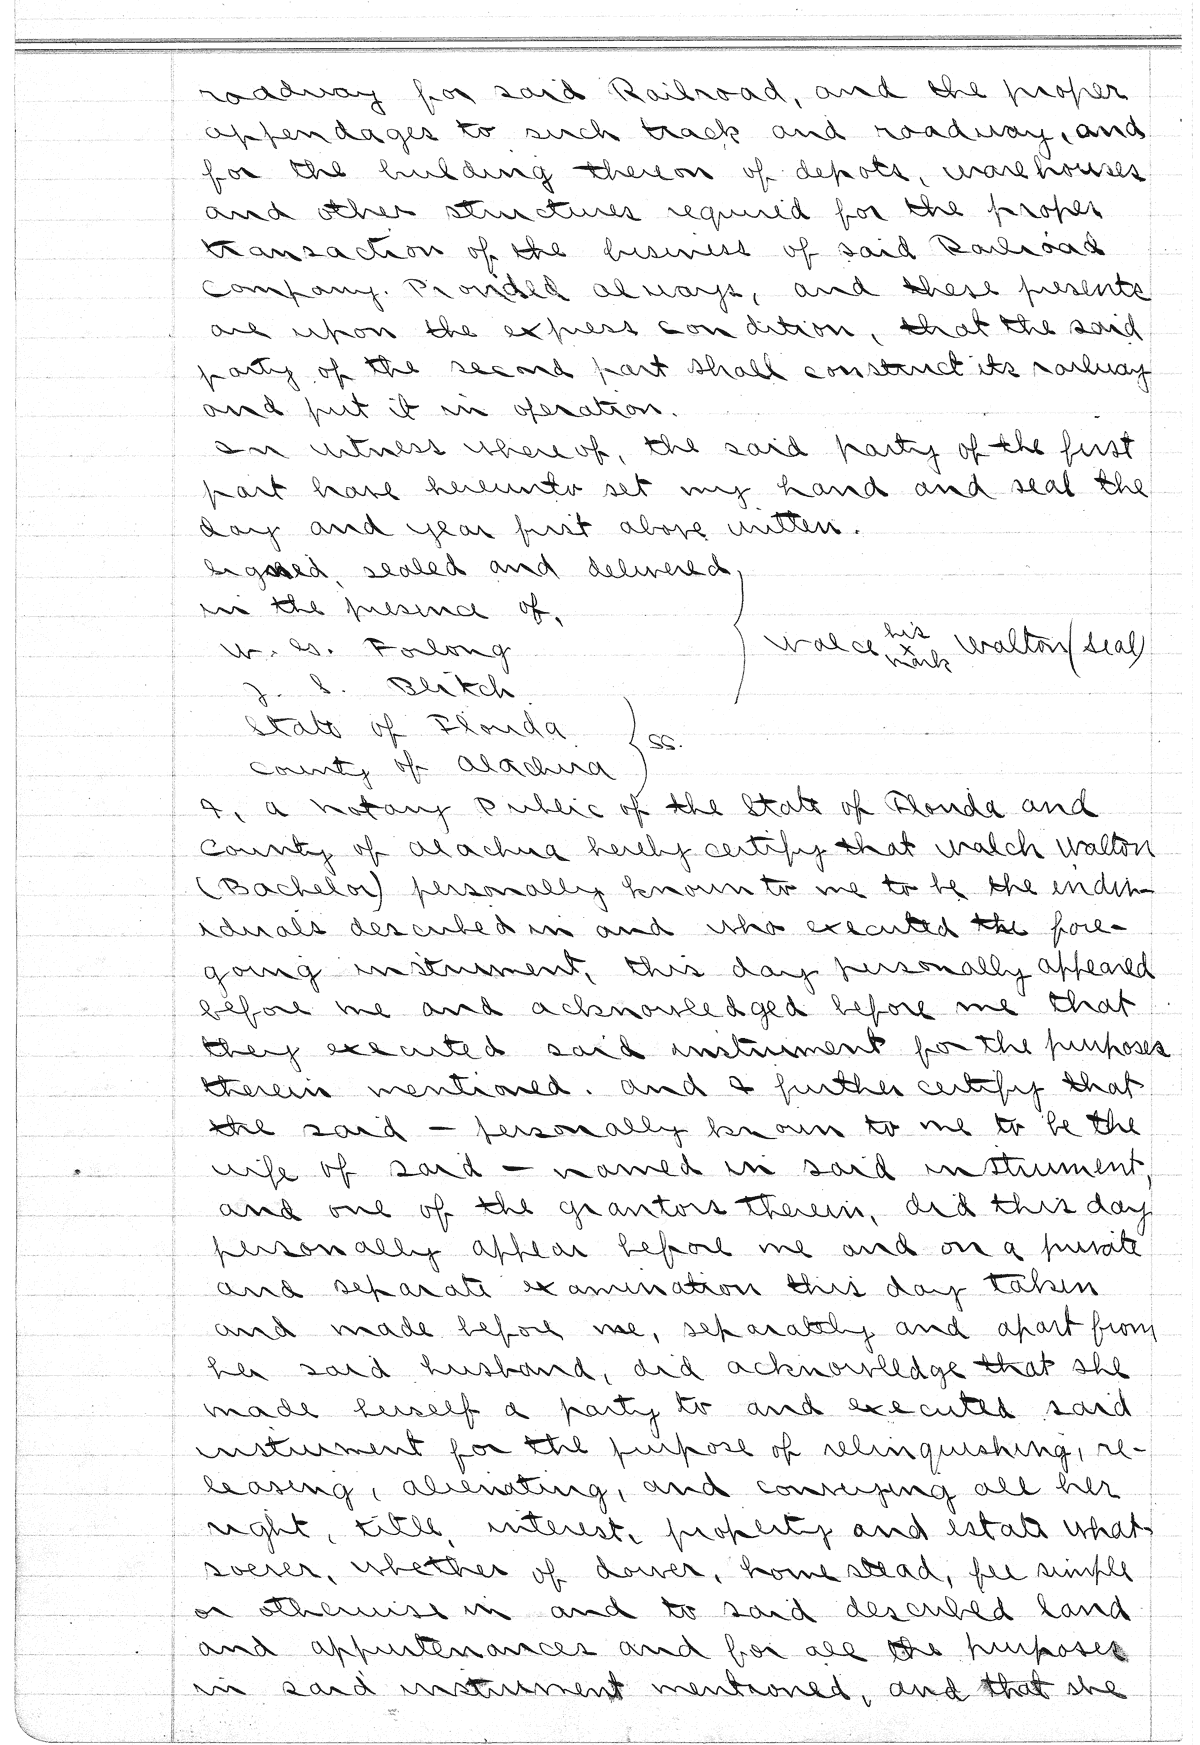 roadway for said Railroad, and the proper
appendages to such track and roadway, and
for the building thereon of depots, warehouses
and other structures required for the proper
transaction of the business of said Railroad
Company. Provided always, and these presents
are upon the express condition, that the said
party of the second part shall construct its railway
and put it in operation.
In witness whereof, the said party of the first
part have hereunto set my hand and seal the
day and year first above written.
Signed, sealed and delivered
in the presence of,
W. G. Forlong
J. S. Blitch
Walce his x mark Walton (seal)
State of Florida
County of Alachua
SS.
I, a Notary Public of the State of Florida and
County of Alachua hereby certify that Walch Walton
(Bachelor) personally known to me to be the indiv-
iduals described in and who executed the fore-
going instrument, this day personally appeared
before me and acknowledged before me that
they executed said instrument for the purposes
therein mentioned. and I further certify that
the said - personally known to me to be the
wife of said - named in said instrument,
and one of the grantors therein, did this day
personally appear before me and on a private
and separate examination this day taken
and made before me, separately and apart from
her said husband, did acknowledge that she
made herself a party to and executed said
instrument for the purpose of relinquishing, re-
leasing, alienating, and conveying all her
right, title, interest, property and estate what-
soever, whether of dower, homestead, fee simple
or otherwise in and to said described land
and appurtenances and for all the purposes
in said instrument mentioned, and that she